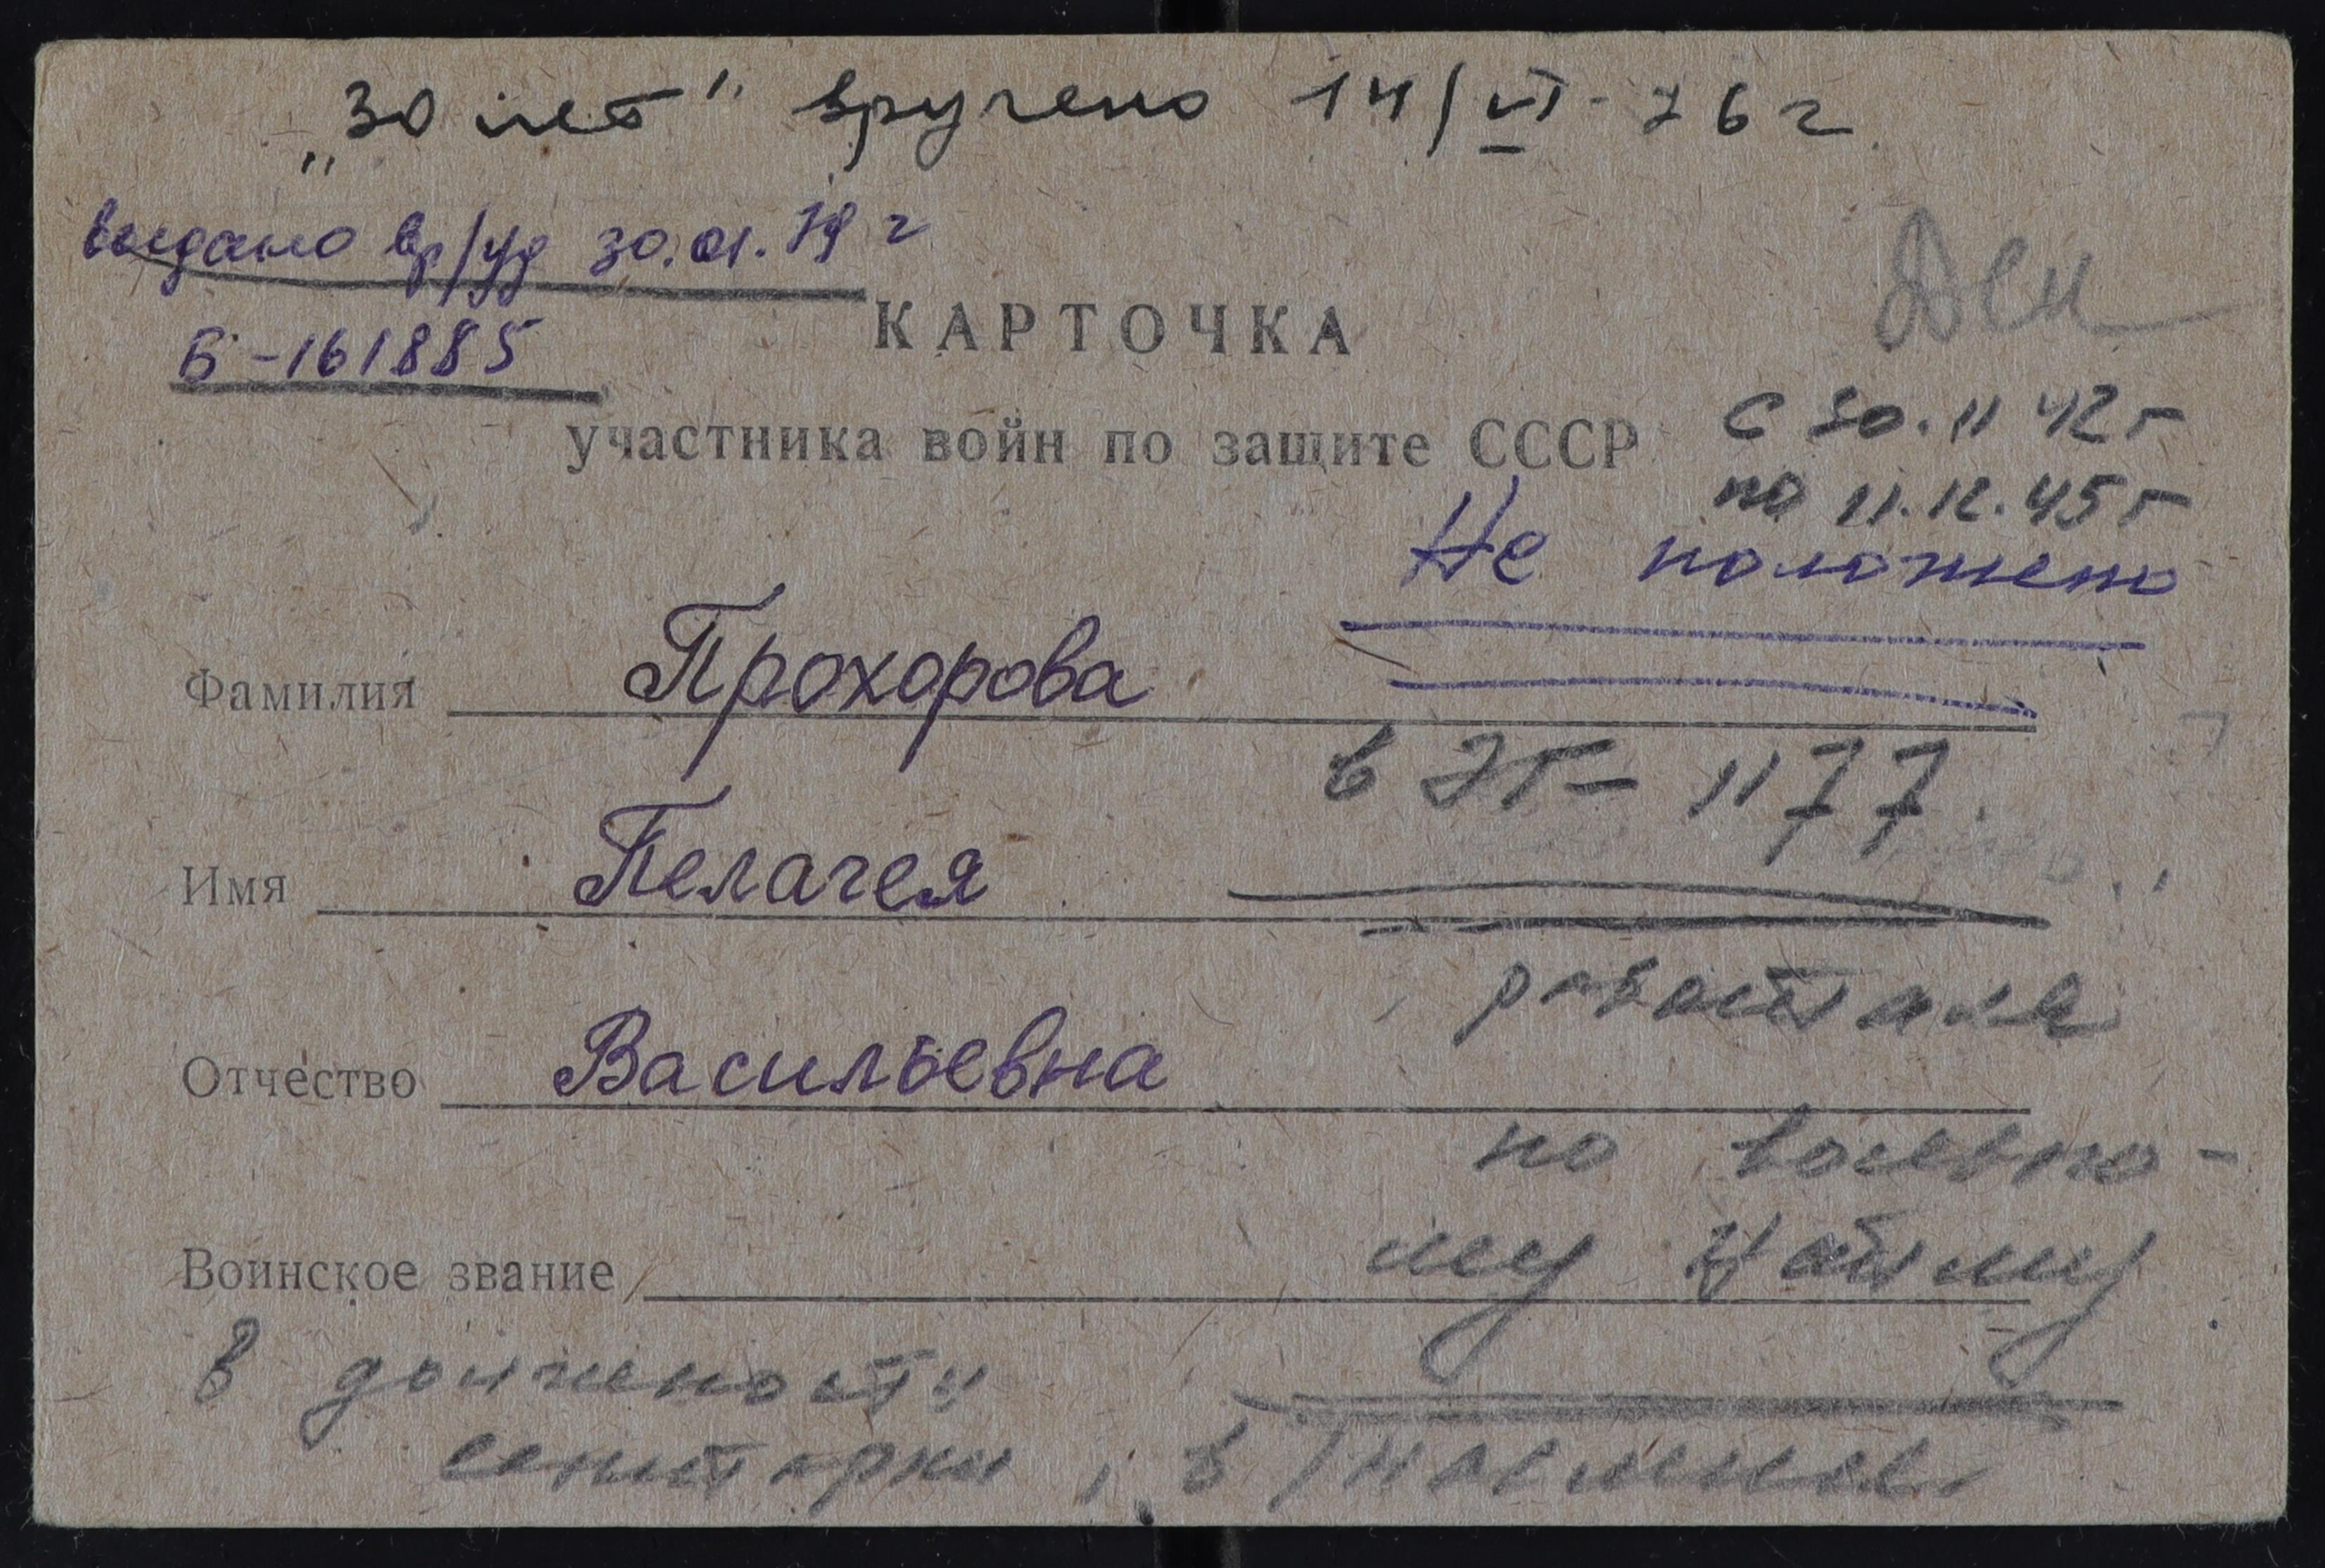 „30 лет" вручено 14/VI-76 г.
выдано вр/уд 30.01.79 г
Б-161885
Ден
КАРТОЧКА
участника войн по защите СССР
с 30.11 42 г
по 11.12.45 г
Не положено
Фамилия Прохорова
в ЭГ-1177
Имя Пелагея
работала
Отчество Васильевна
по вольно-
му найму
Воинское звание
в должности
санитарки, в